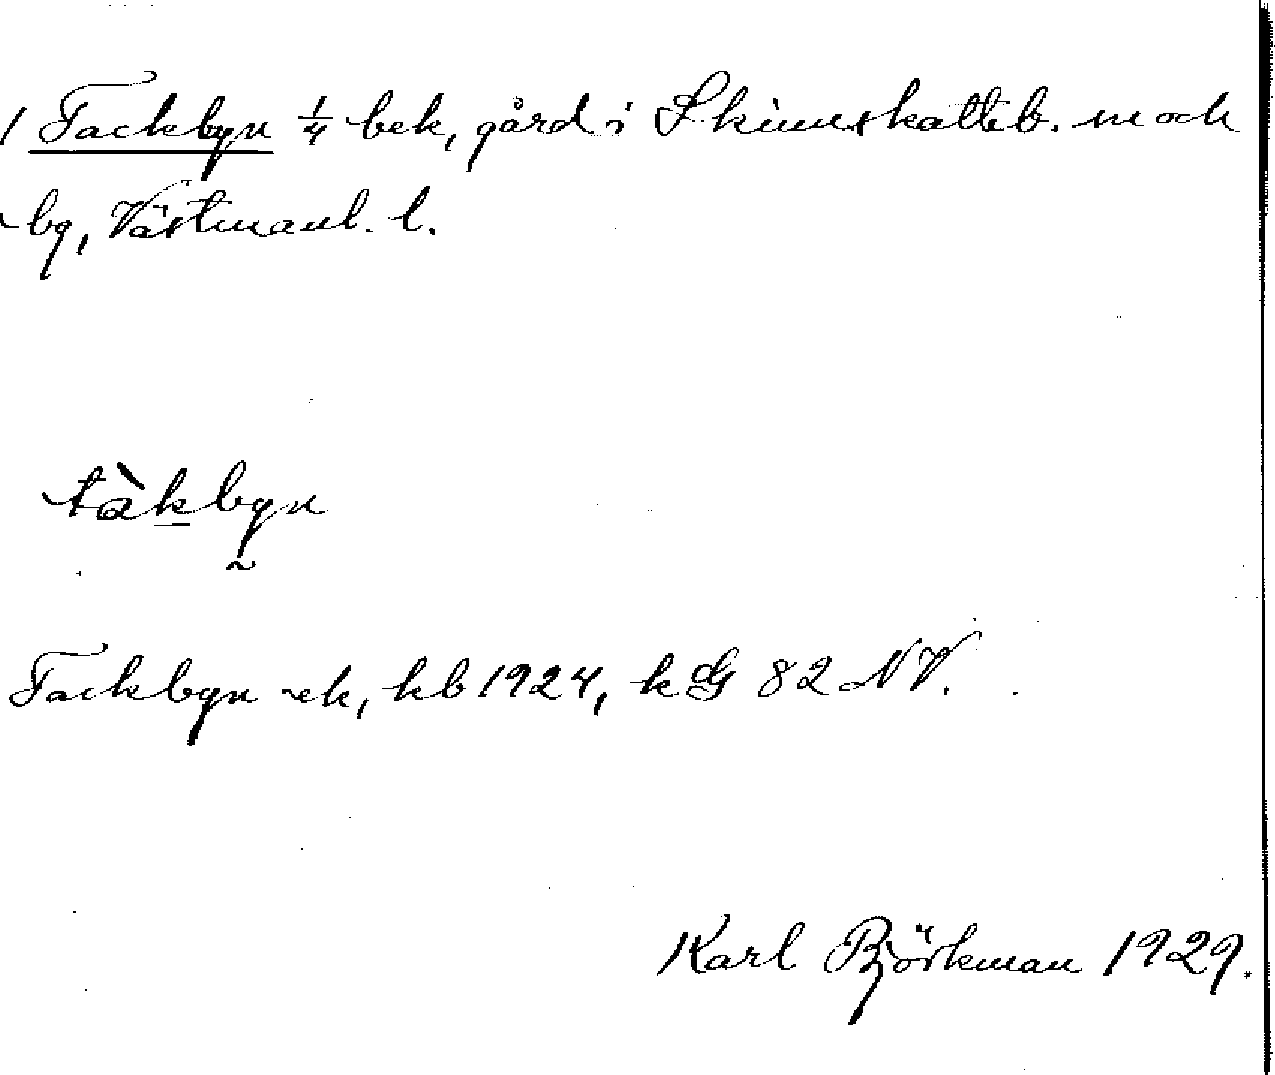 1 Tackbyn 1/4 bek, gård i Skinnskatteb. sn och
bg, Västmanl. l.
tàkbyn
Tackbyn ek, kb 1924, k G 82 NV.
Karl Björkman 1929.